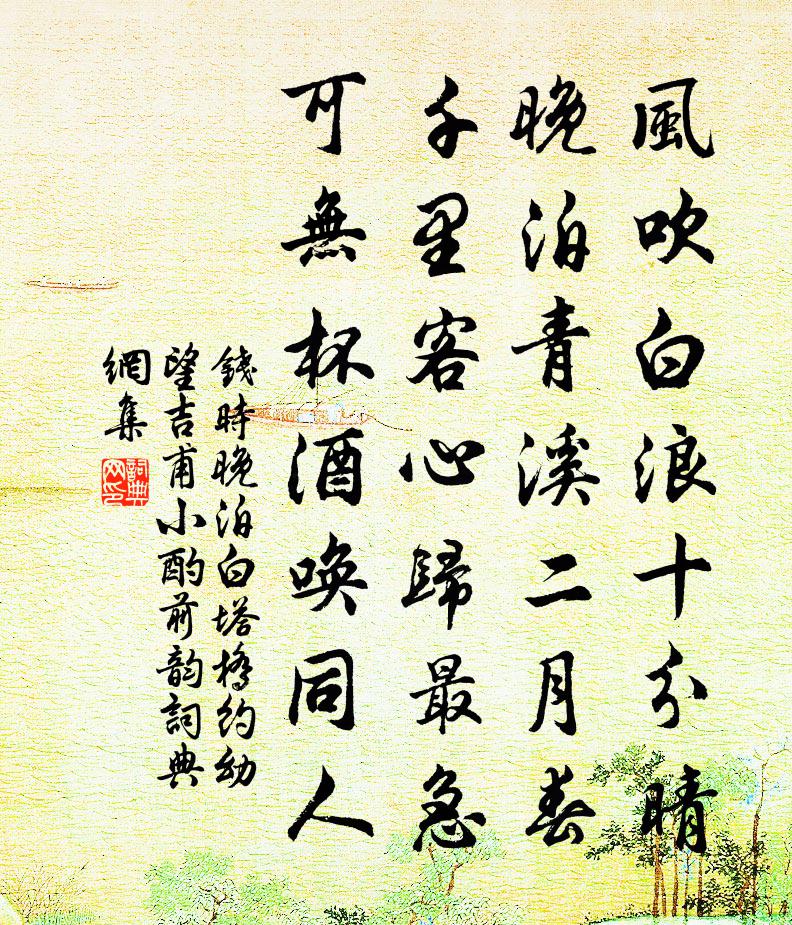 風吹白浪十分晴
晚泊青溪二月春
千里客心歸最急
可無杯酒喚同人
錢時晚泊白塔橋約幼
望吉甫小酌前韵詞典
網集
詞典
网印